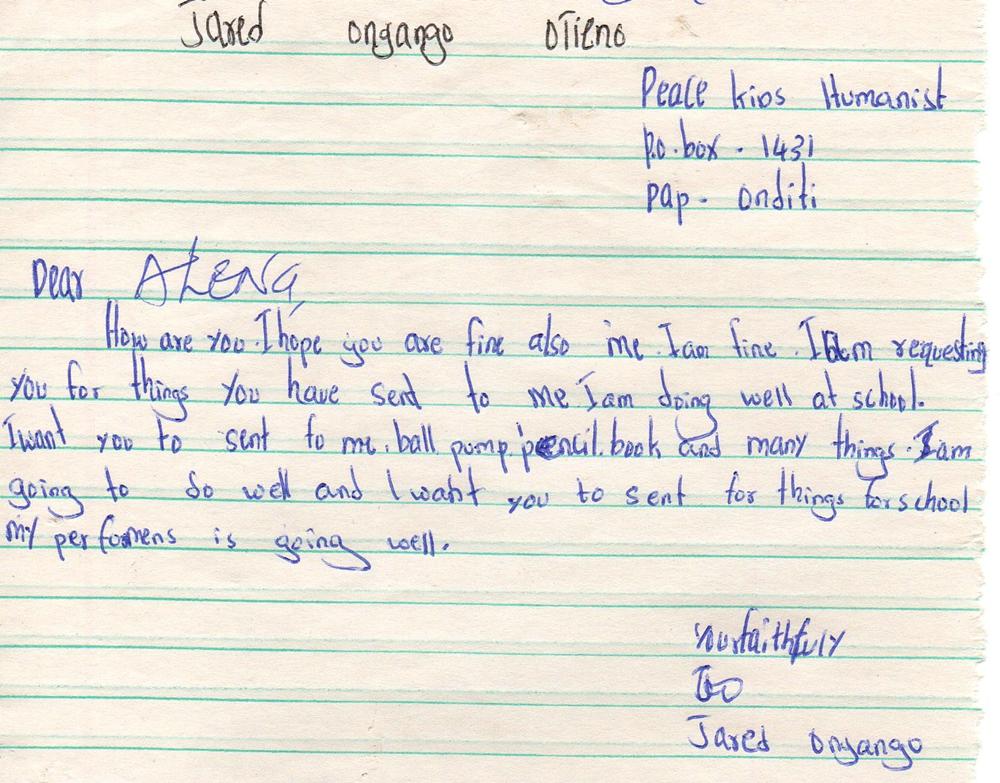 Jared ongango oTieno
Peace kids Humanist
P.o.box - 1431
pap - onditi
Dear ALENG,
How are you. I hope you are fine also me. I am fine. I am requesting
you for things you have sent to me. I am doing well at school.
I want you to sent to me. ball pump. pencil. book and many things. I am
going to do well and I want you to sent for things for school
my perfomens is going well.
Yourfaithfuly
Jared onyango